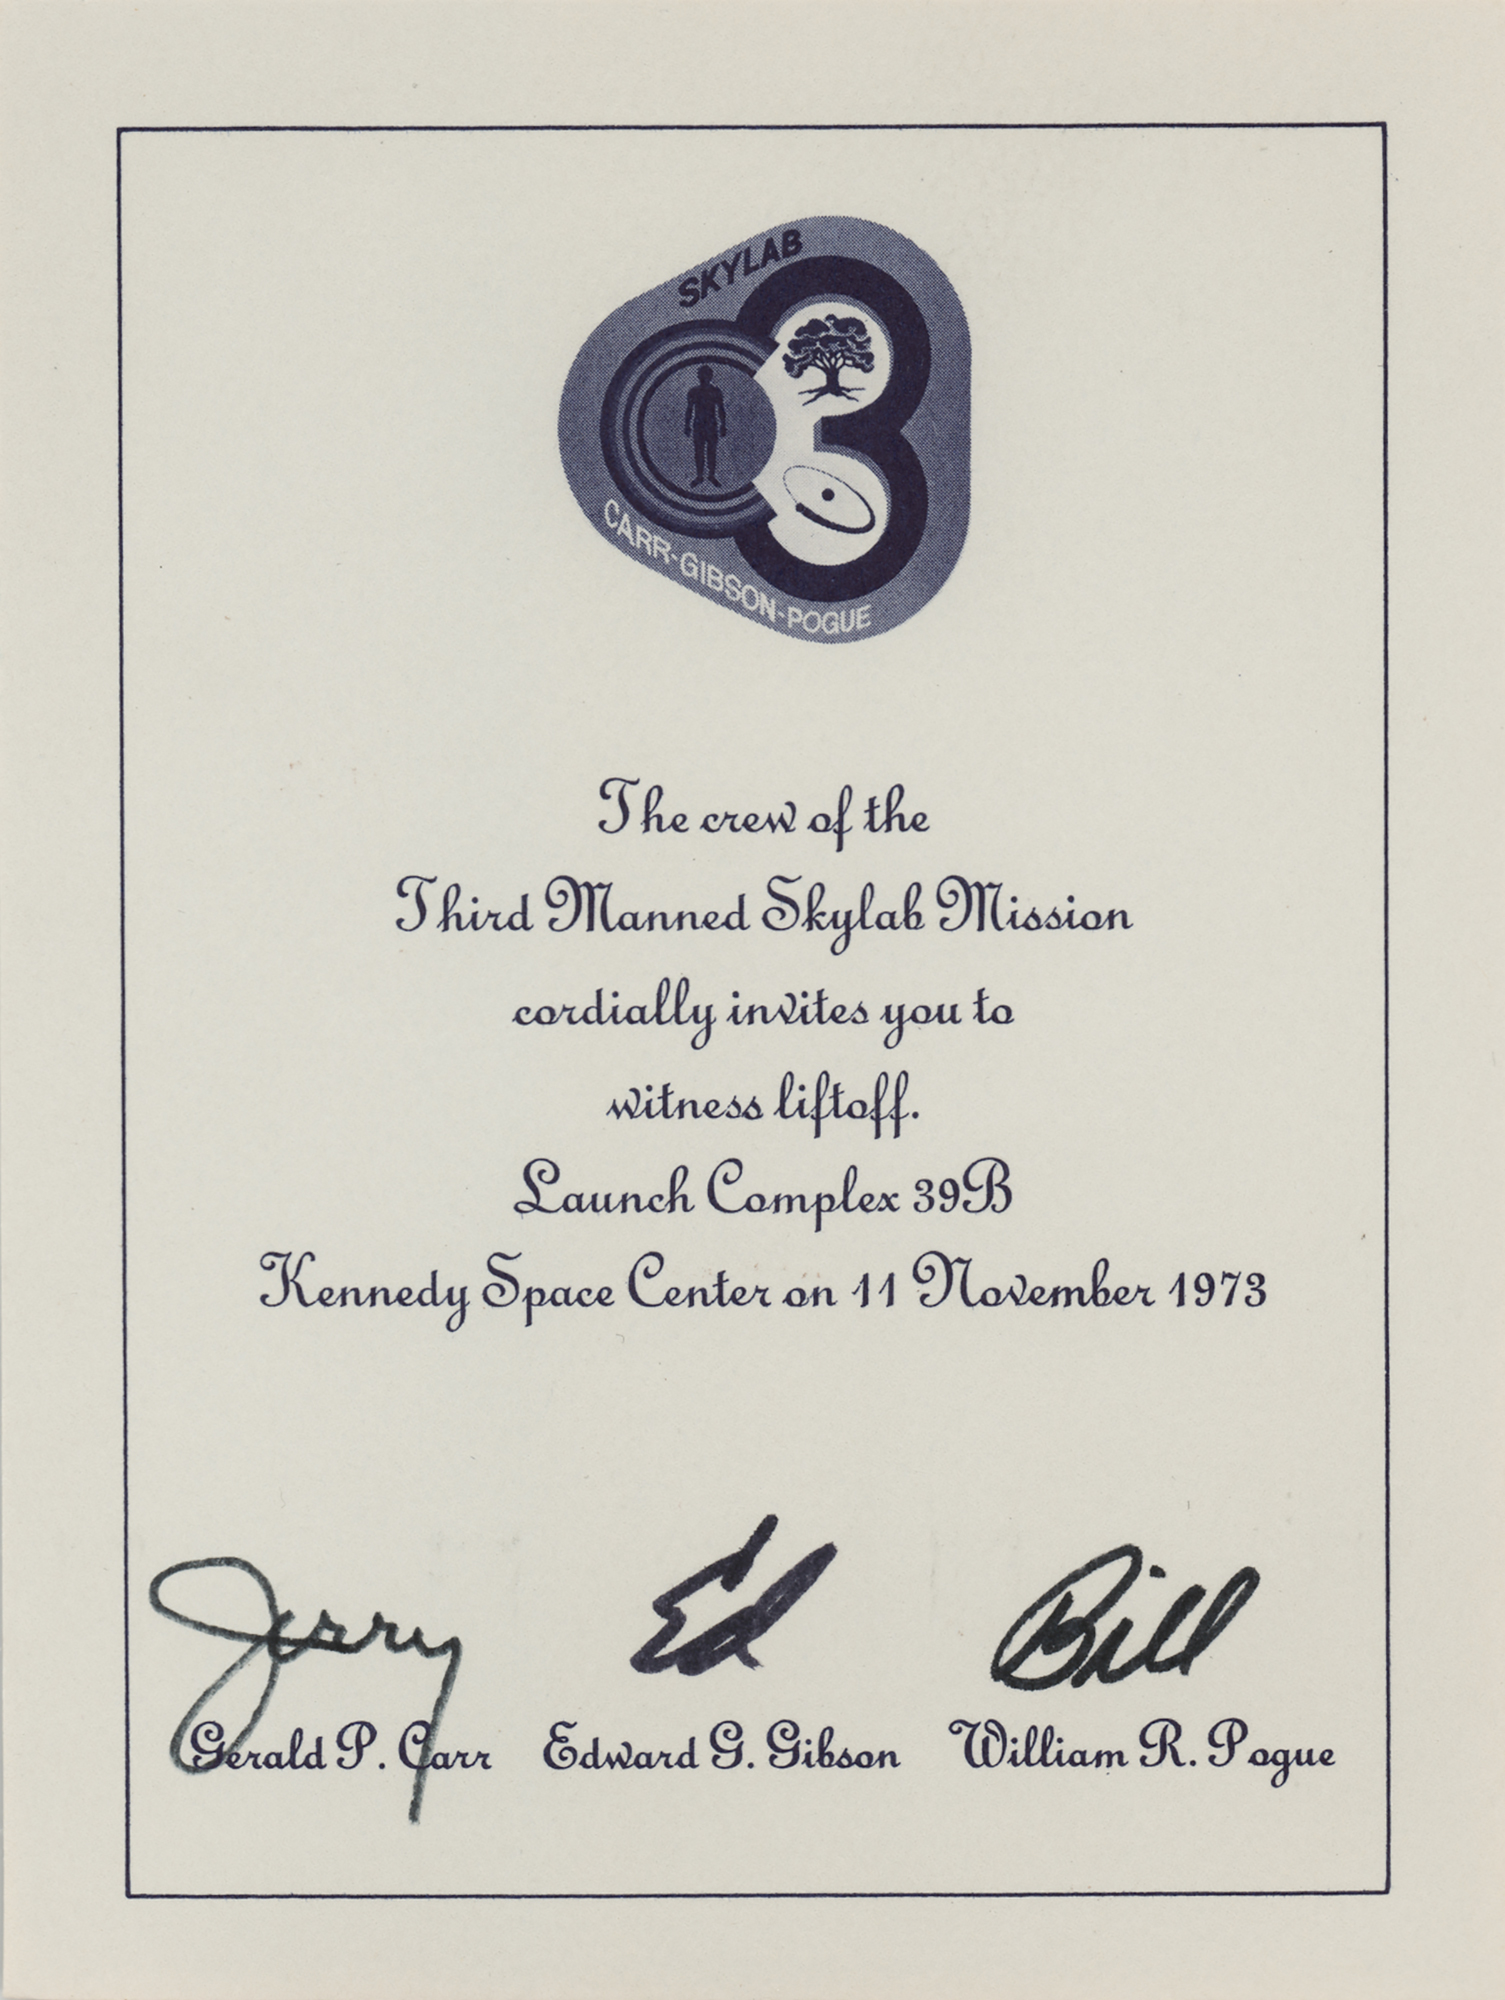 SKYLAB
CARR-GIBSON-POGUE
The crew of the
Third Manned Skylab Mission
cordially invites you to
witness liftoff.
Launch Complex 39B
Kennedy Space Center on 11 November 1973
Jerry Ed Bill
Gerald P. Carr Edward G. Gibson William R. Pogue